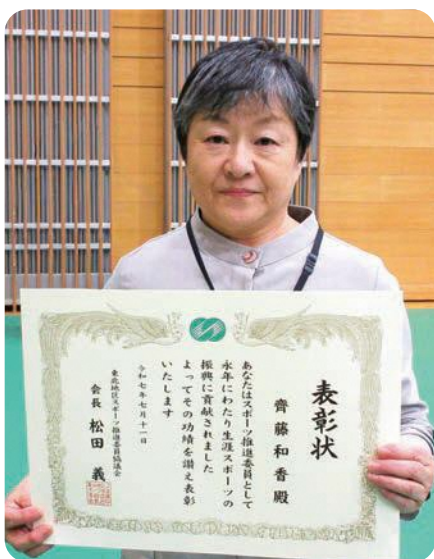 表彰状
齊藤和香殿
あなたはスポーツ推進委員として
永年にわたり生涯スポーツの
振興に貢献されました
よってその功績を讃え表彰
いたします
令和七年七月十一日
東北地区スポーツ推進委員協議会
会長 松田義